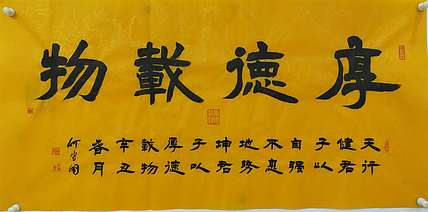 厚德載物
天行
健君
子以
自强
不息
地势
坤君
子以
厚德
載物
辛丑
春月